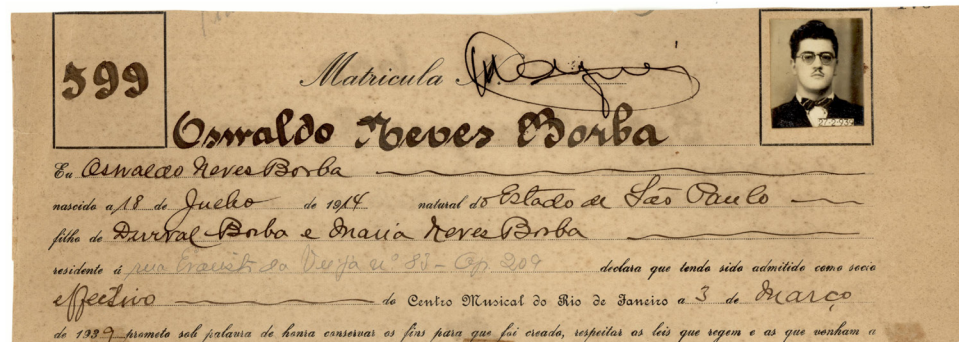 599
Matricula N.
27-2-939
Oswaldo Neves Borba
Eu Oswaldo Neves Borba
nascido a 18 de Julho de 1914 natural do Estado de São Paulo
filho de Durval Borba e Maria Neves Borba
residente á rua Evaristo da Veiga nº 83 - Ap 209 declara que tendo sido admitido como socio
effectivo do Centro Musical do Rio de Janeiro a 3 de Março
de 1939 prometo sob palavra de honra conservar os fins para que foi creado, respeitar as leis que regem e as que venham a